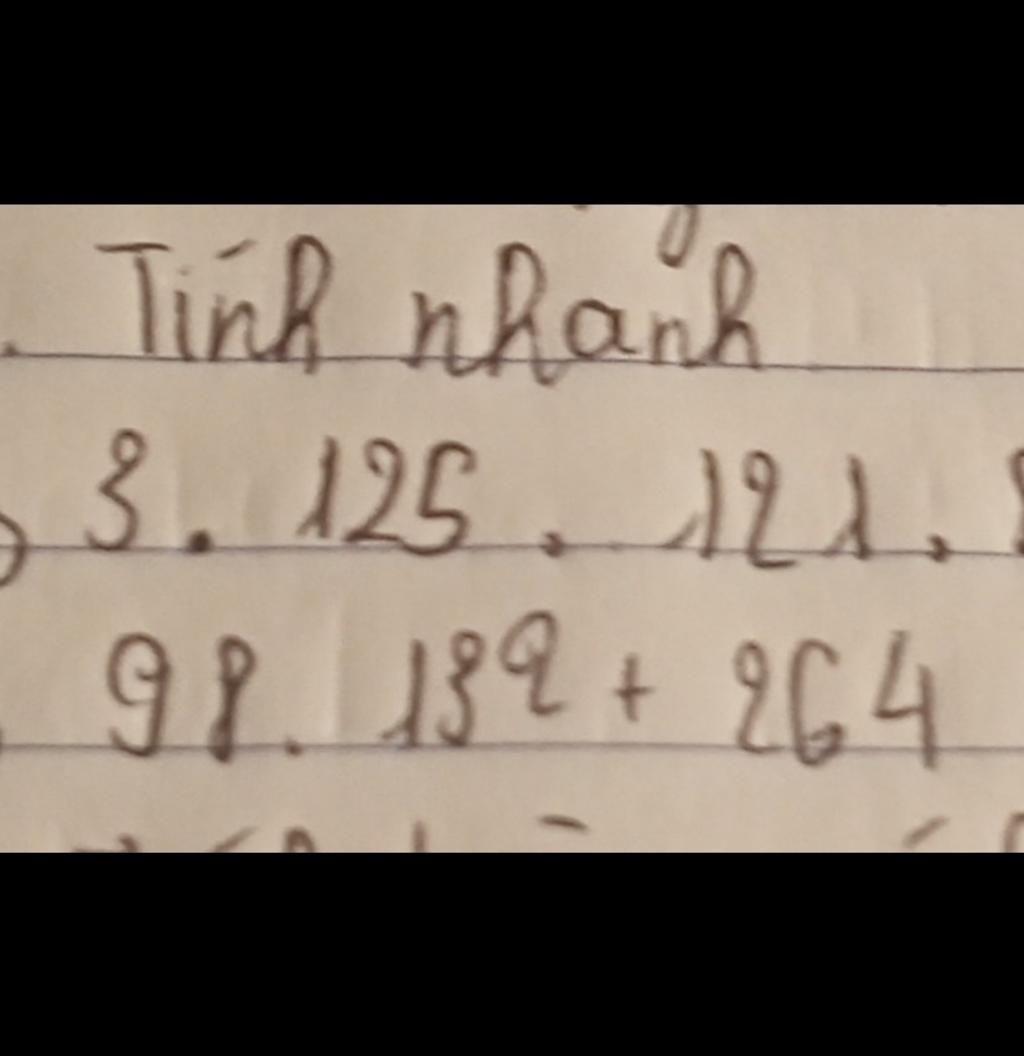 Tính nhanh
3 . 125 . 121 .
98 . 132 + 264